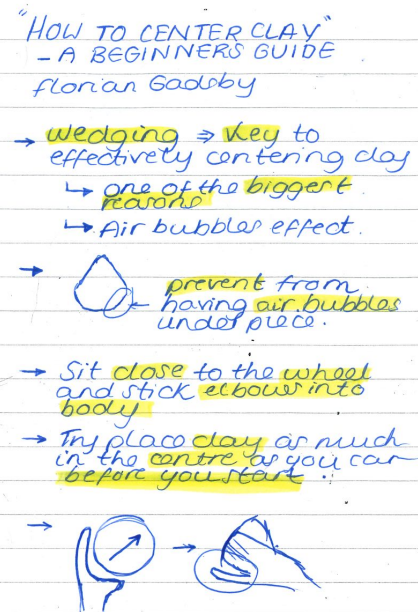 "HOW TO CENTER CLAY"
- A BEGINNERS GUIDE
florian Gadsby
→ wedging ⇒ key to
effectively centering clay
↳ one of the biggest
reasons
↳ Air bubbles effect.
→ prevent from
← having air bubbles
under piece.
→ Sit close to the wheel
and stick elbows into
body
→ Try place clay as much
in the centre as you can
before you start.
→ →